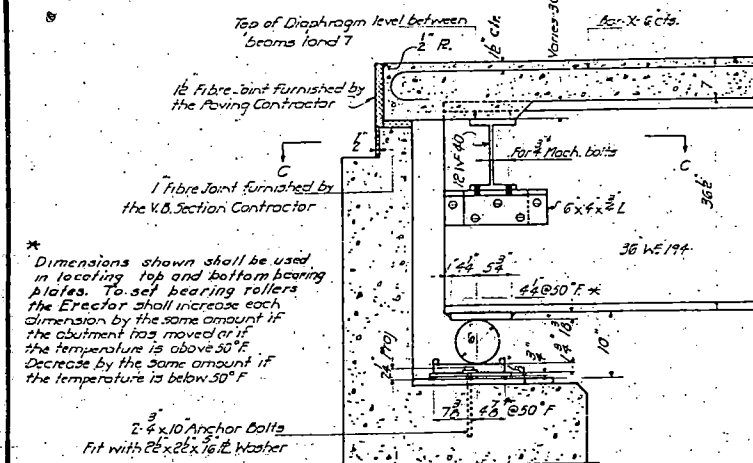 Top of Diaphragm level between
beams 1 and 7
1/2" R.
1/2" clr.
Varies
Bar-X-6"cts.
1/2" Fibre Joint furnished by
the Paving Contractor
7
1/2"
C
C
12 WF 40
For 3/4" Mach. bolts
1" Fibre Joint furnished by
the V.B. Section Contractor
6"x4"x L
36 WF 194
*
Dimensions shown shall be used
in locating top and bottom bearing
plates. To set bearing rollers
the Erector shall increase each
dimension by the same amount if
the abutment has moved or if
the temperature is above 50°F.
Decrease by the same amount if
the temperature is below 50°F
1" 4 1/4" 5 3/4"
4 1/4 @ 50°F. *
6
10"
2 1/2" Proj
3/4"
7 3/8" 4 7/8" @ 50°F
2-3/4"x10" Anchor Bolts
Fit with 2 1/2"x2 1/2"x5/16" PL Washer